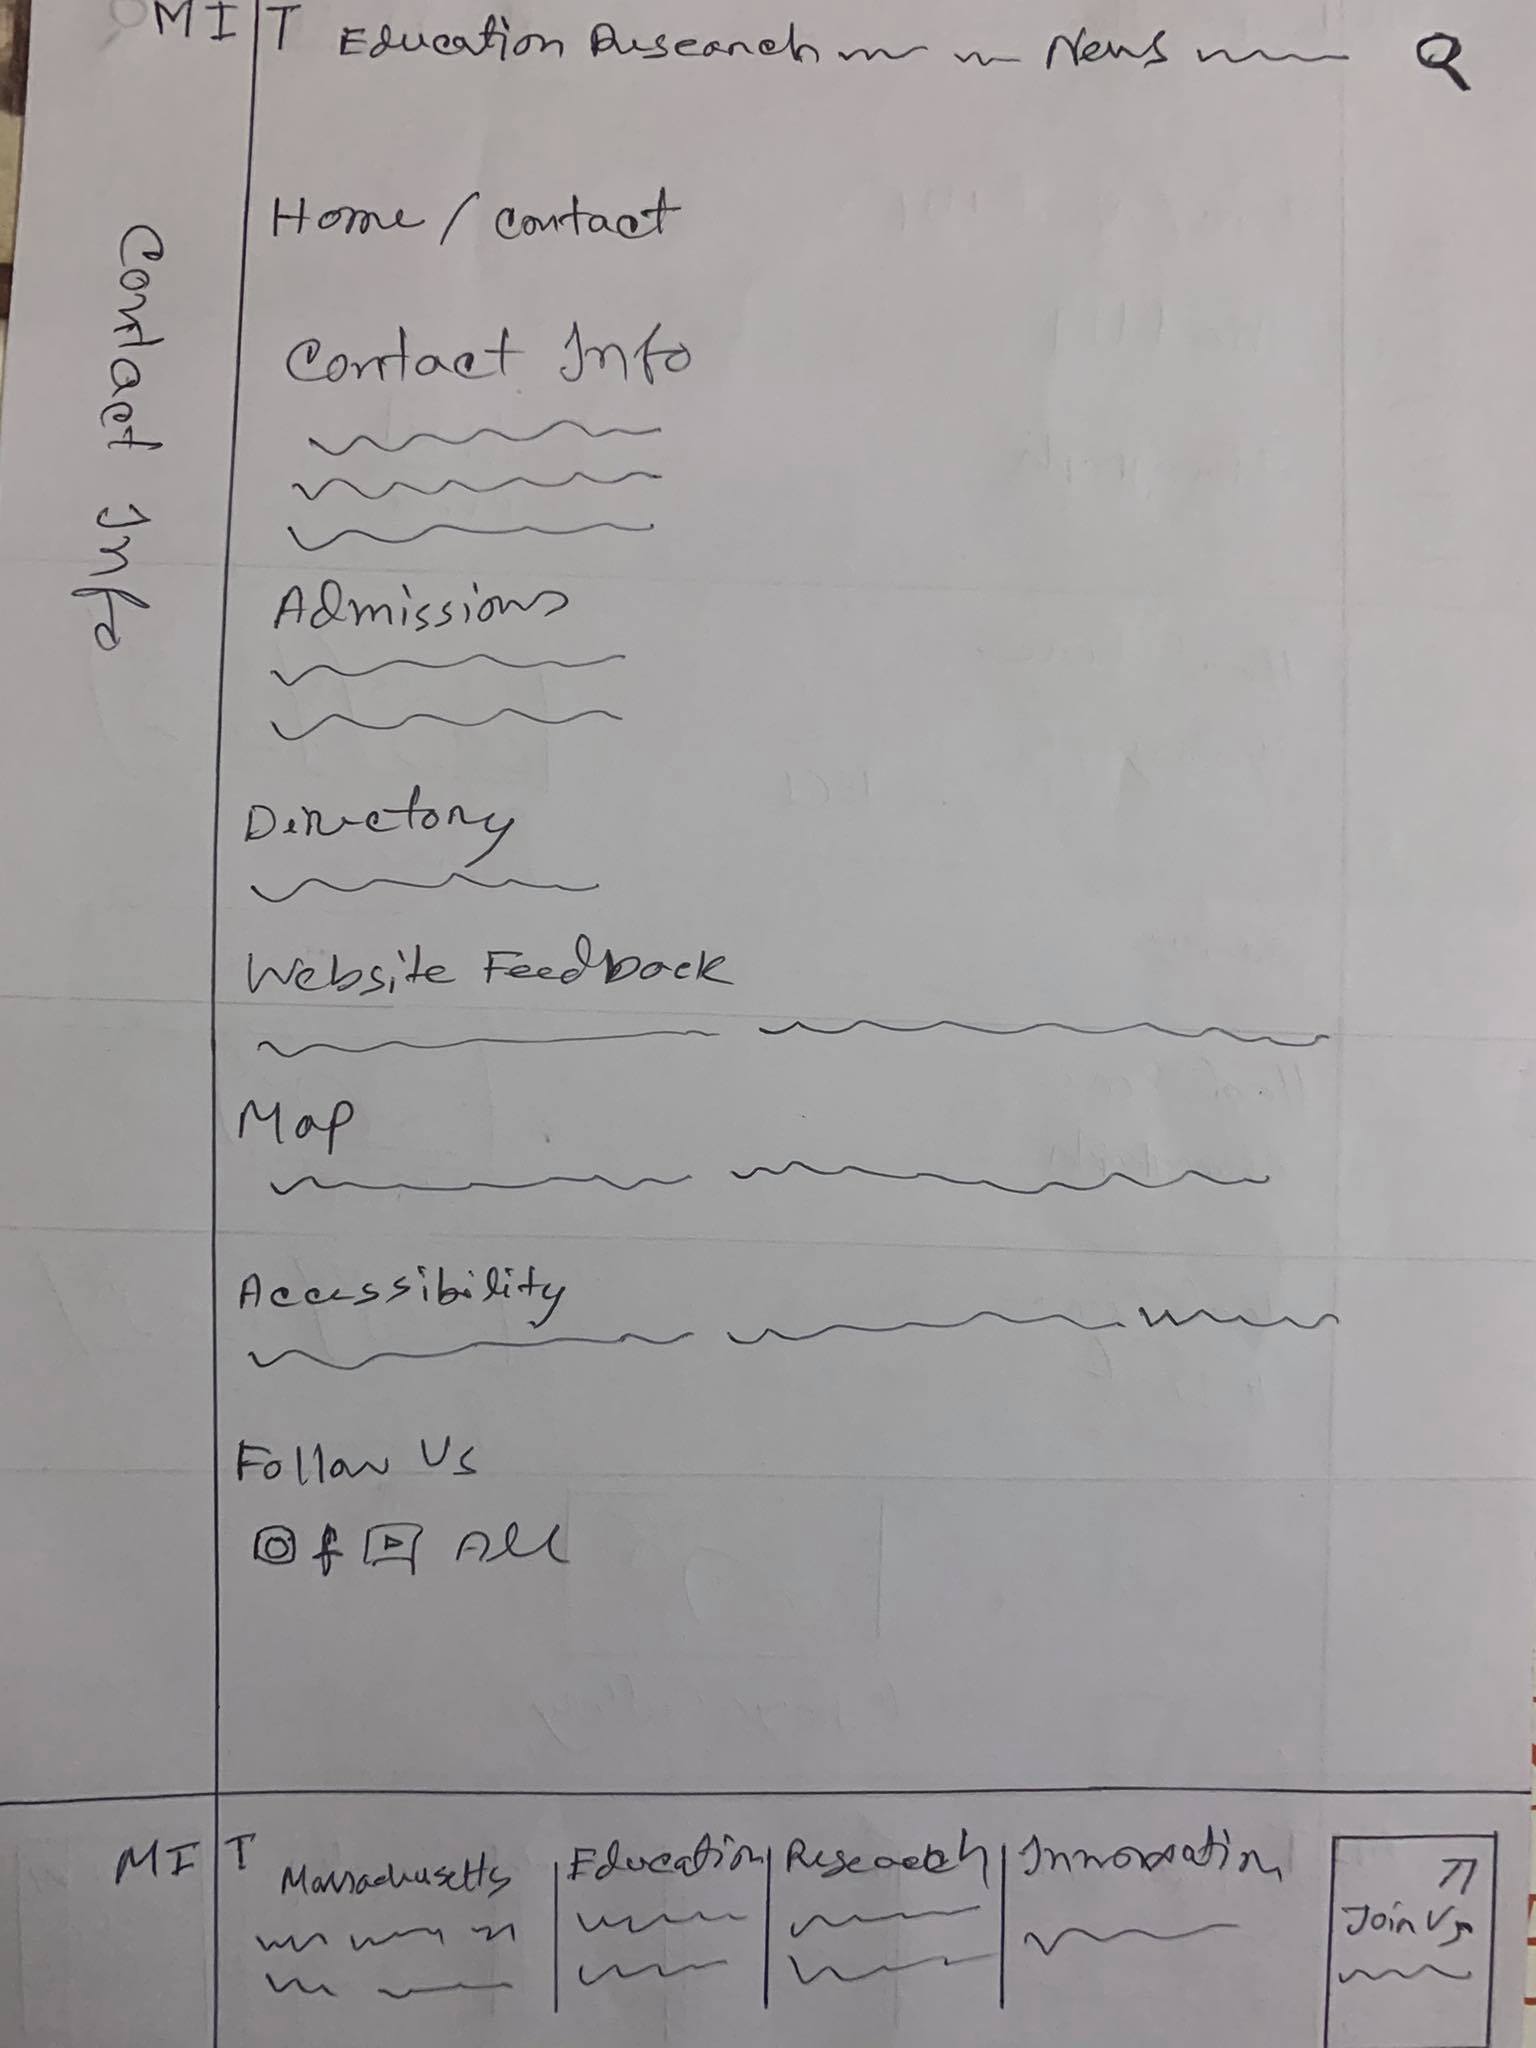 MIT Education Research News
Home / contact
Contact Info
Contact Info
Admissions
Directory
Website Feedback
Map
Accessibility
Follow Us
f All
MIT Massachusetts Education Research Innovation
Join Us